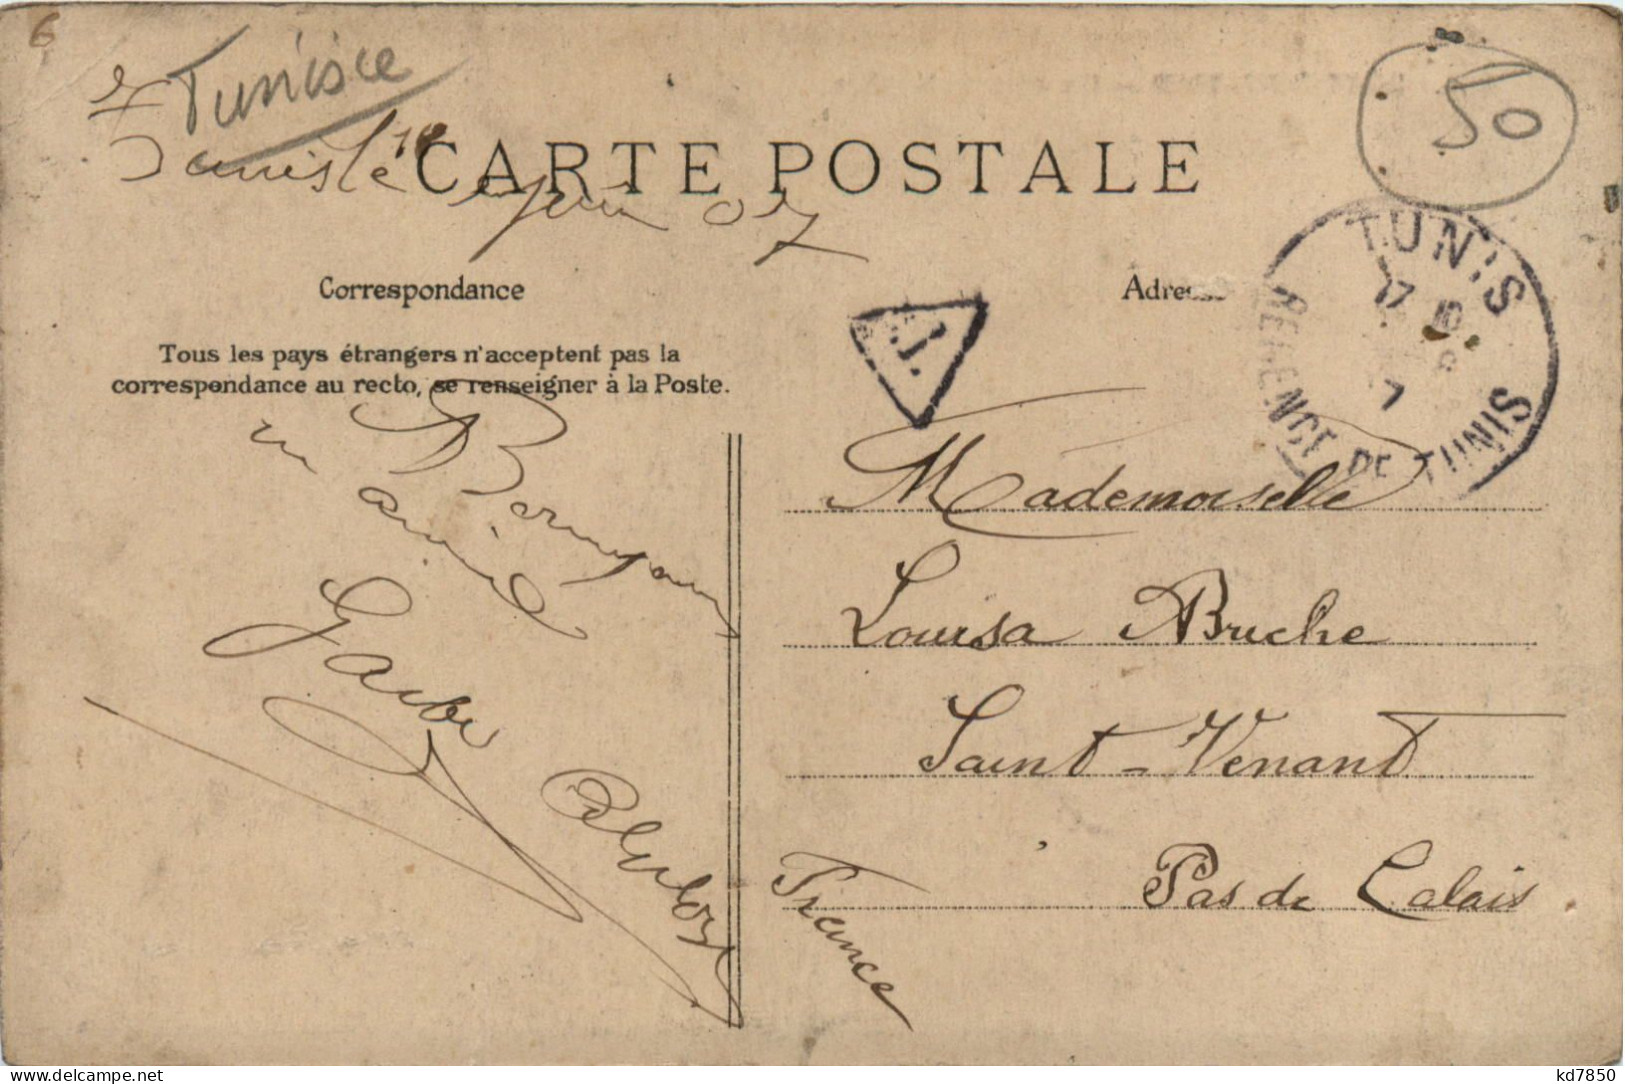 6
Tunisie
50
Tunis le 1er Juin 07
CARTE POSTALE
TUNIS
REGENCE DE TUNIS
17
7
Correspondance
Adresse
Tous les pays étrangers n'acceptent pas la
correspondance au recto, se renseigner à la Poste.
T.
un Bonjour
amical
Mademoiselle
Louisa Bruche
Saint-Venant
Pas de Calais
France
www.delcampe.net
kd7850